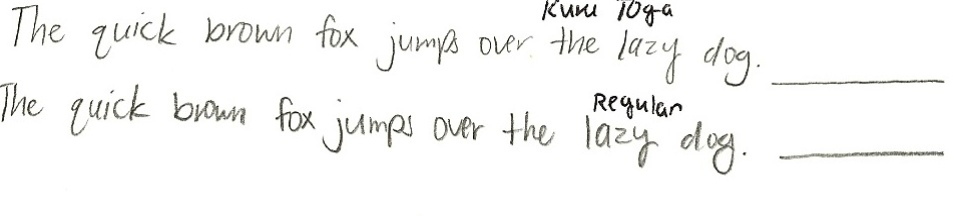 Kuru Toga
The quick brown fox jumps over the lazy dog.
Regular
The quick brown fox jumps over the lazy dog.